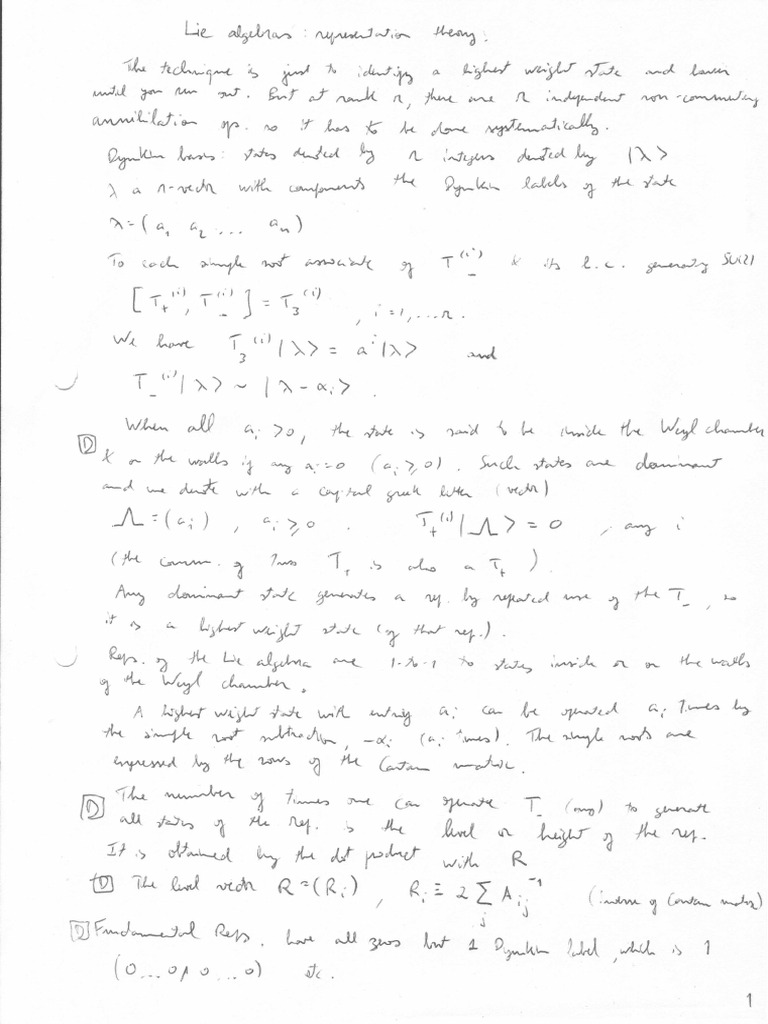 Lie algebras: representation theory:
The technique is just to identify a highest weight state and lower
until you run out. But at rank r, there are r independent non-commuting
annihilation ops. so it has to be done systematically.
Dynkin basis: states denoted by r integers denoted by |λ>
λ a r-vector with components the Dynkin labels of the state
λ = (a₁ a₂ ... aₙ)
To each simple root associate T₋⁽ⁱ⁾ & its h.c. generating SU(2)
[T₊⁽ⁱ⁾, T₋⁽ⁱ⁾] = T₃⁽ⁱ⁾ , i=1,...r.
We have T₃⁽ⁱ⁾|λ> = aⁱ|λ> and
T₋⁽ⁱ⁾|λ> ~ |λ - αᵢ> .
When all aᵢ>0, the state is said to be inside the Weyl chamber
[D] & on the walls if any aᵢ=0 (aᵢ≥0). Such states are dominant
and we denote with a capital greek letter (vector)
Λ = (aᵢ) , aᵢ≥0 . T₊⁽ⁱ⁾|Λ> = 0 , any i
(the comm. of two T₊ is also a T₊ ).
Any dominant state generates a rep. by repeated use of the T₋, so
it is a highest weight state (of that rep.).
Reps. of the Lie algebra are 1-to-1 to states inside or on the walls
of the Weyl chamber.
A highest weight state with entry aᵢ can be operated aᵢ times by
the simple root subtraction, -αᵢ (aᵢ times). The simple roots are
expressed by the rows of the Cartan matrix.
[D] The number of times one can operate T₋ (any) to generate
all states of the rep. is the level or height of the rep.
It is obtained by the dot product with R
[D] The level vector R = (Rᵢ) , Rᵢ ≡ 2 Σⱼ Aᵢⱼ⁻¹ (inverse of Cartan matrix)
[D] Fundamental Reps. have all zeros but 1 Dynkin label, which is 1
(0...0 1 0 ...0) etc.
1